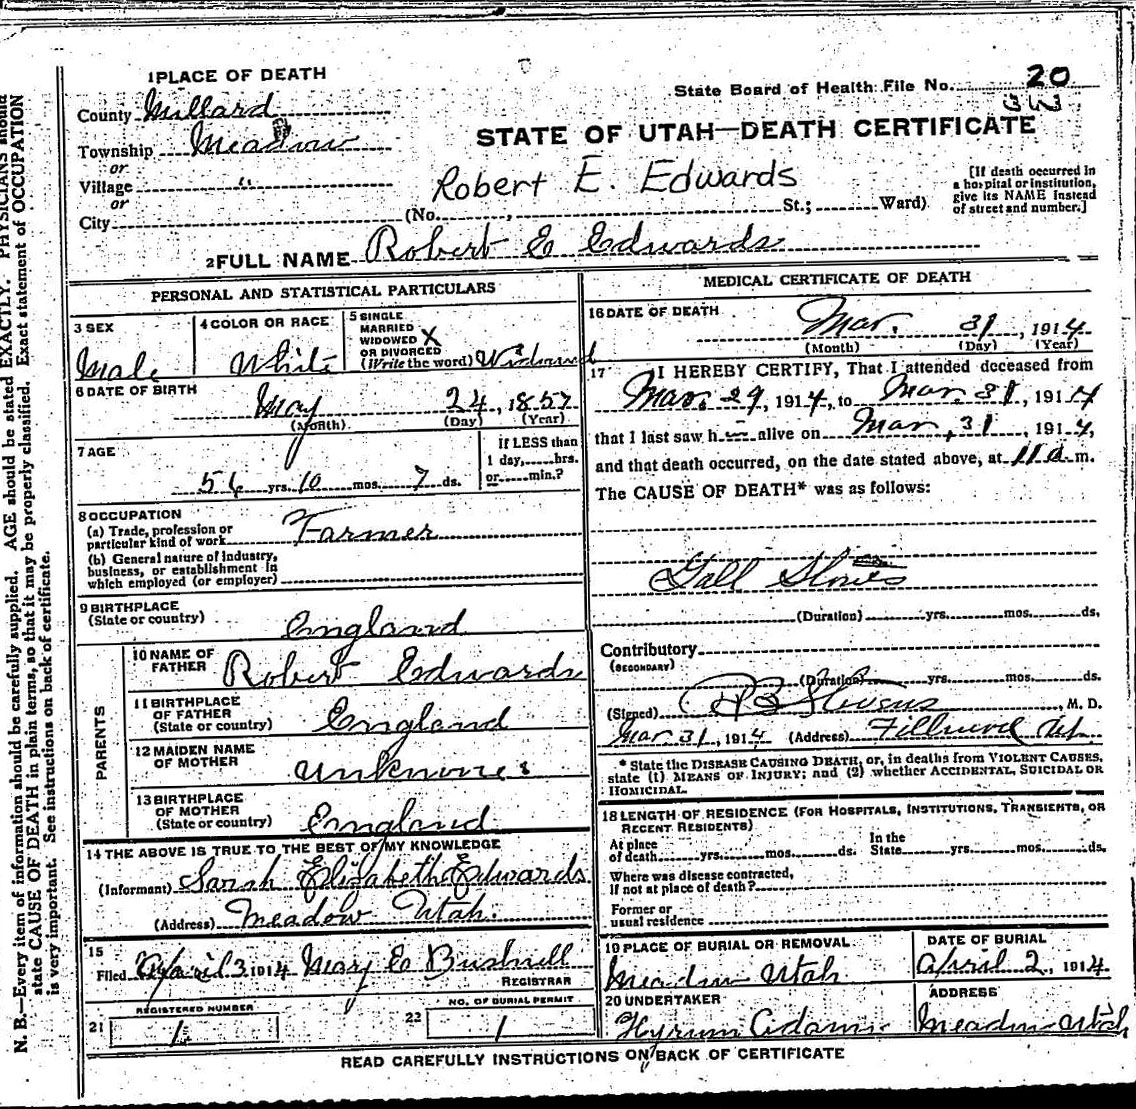 N. B.—Every item of information should be carefully supplied. AGE should be stated EXACTLY. PHYSICIANS should
state CAUSE OF DEATH in plain terms, so that it may be properly classified. Exact statement of OCCUPATION
is very important. See instructions on back of certificate.
1 PLACE OF DEATH
County Millard
Township Meadow
or
Village "
or
City
State Board of Health File No. 20
32
STATE OF UTAH—DEATH CERTIFICATE
Robert E. Edwards
(No. , St.; Ward)
[If death occurred in
a hospital or institution,
give its NAME instead
of street and number.]
2 FULL NAME Robert E Edwards
PERSONAL AND STATISTICAL PARTICULARS
3 SEX
Male
4 COLOR OR RACE
White
5 SINGLE
MARRIED
WIDOWED X
OR DIVORCED
(Write the word) Widowed
6 DATE OF BIRTH
May 24, 1857
(Month) (Day) (Year)
7 AGE
56 yrs. 10 mos. 7 ds.
If LESS than
1 day, hrs.
or min.?
8 OCCUPATION
(a) Trade, profession or
particular kind of work Farmer
(b) General nature of industry,
business, or establishment in
which employed (or employer)
9 BIRTHPLACE
(State or country) England
PARENTS
10 NAME OF
FATHER Robert Edwards
11 BIRTHPLACE
OF FATHER
(State or country) England
12 MAIDEN NAME
OF MOTHER
13 BIRTHPLACE
OF MOTHER
(State or country) England
14 THE ABOVE IS TRUE TO THE BEST OF MY KNOWLEDGE
(Informant) Sarah Elizabeth Edwards
(Address) Meadow Utah.
15
Filed April 3, 1914 Mary E Bushnell
REGISTRAR
21 REGISTERED NUMBER
1
22 NO. OF BURIAL PERMIT
1
MEDICAL CERTIFICATE OF DEATH
16 DATE OF DEATH
Mar. 31, 1914
(Month) (Day) (Year)
17 I HEREBY CERTIFY, That I attended deceased from
Mar. 29, 1914, to Mar. 31, 1914
that I last saw h im alive on Mar, 31, 1914,
and that death occurred, on the date stated above, at 11 a m.
The CAUSE OF DEATH* was as follows:
Gall Stones
(Duration) yrs. mos. ds.
Contributory
(SECONDARY)
(Duration) yrs. mos. ds.
(Signed) Stevens, M. D.
Mar 31, 1914 (Address) Fillmore Ut.
* State the DISEASE CAUSING DEATH, or, in deaths from VIOLENT CAUSES,
state (1) MEANS OF INJURY; and (2) whether ACCIDENTAL, SUICIDAL OR
HOMICIDAL.
18 LENGTH OF RESIDENCE (FOR HOSPITALS, INSTITUTIONS, TRANSIENTS, OR
RECENT RESIDENTS)
At place
of death yrs. mos. ds.
In the
State yrs. mos. ds.
Where was disease contracted,
If not at place of death?
Former or
usual residence
19 PLACE OF BURIAL OR REMOVAL
Meadow Utah
DATE OF BURIAL
April 2, 1914
20 UNDERTAKER
Hyrum Adams
ADDRESS
Meadow Utah
READ CAREFULLY INSTRUCTIONS ON BACK OF CERTIFICATE